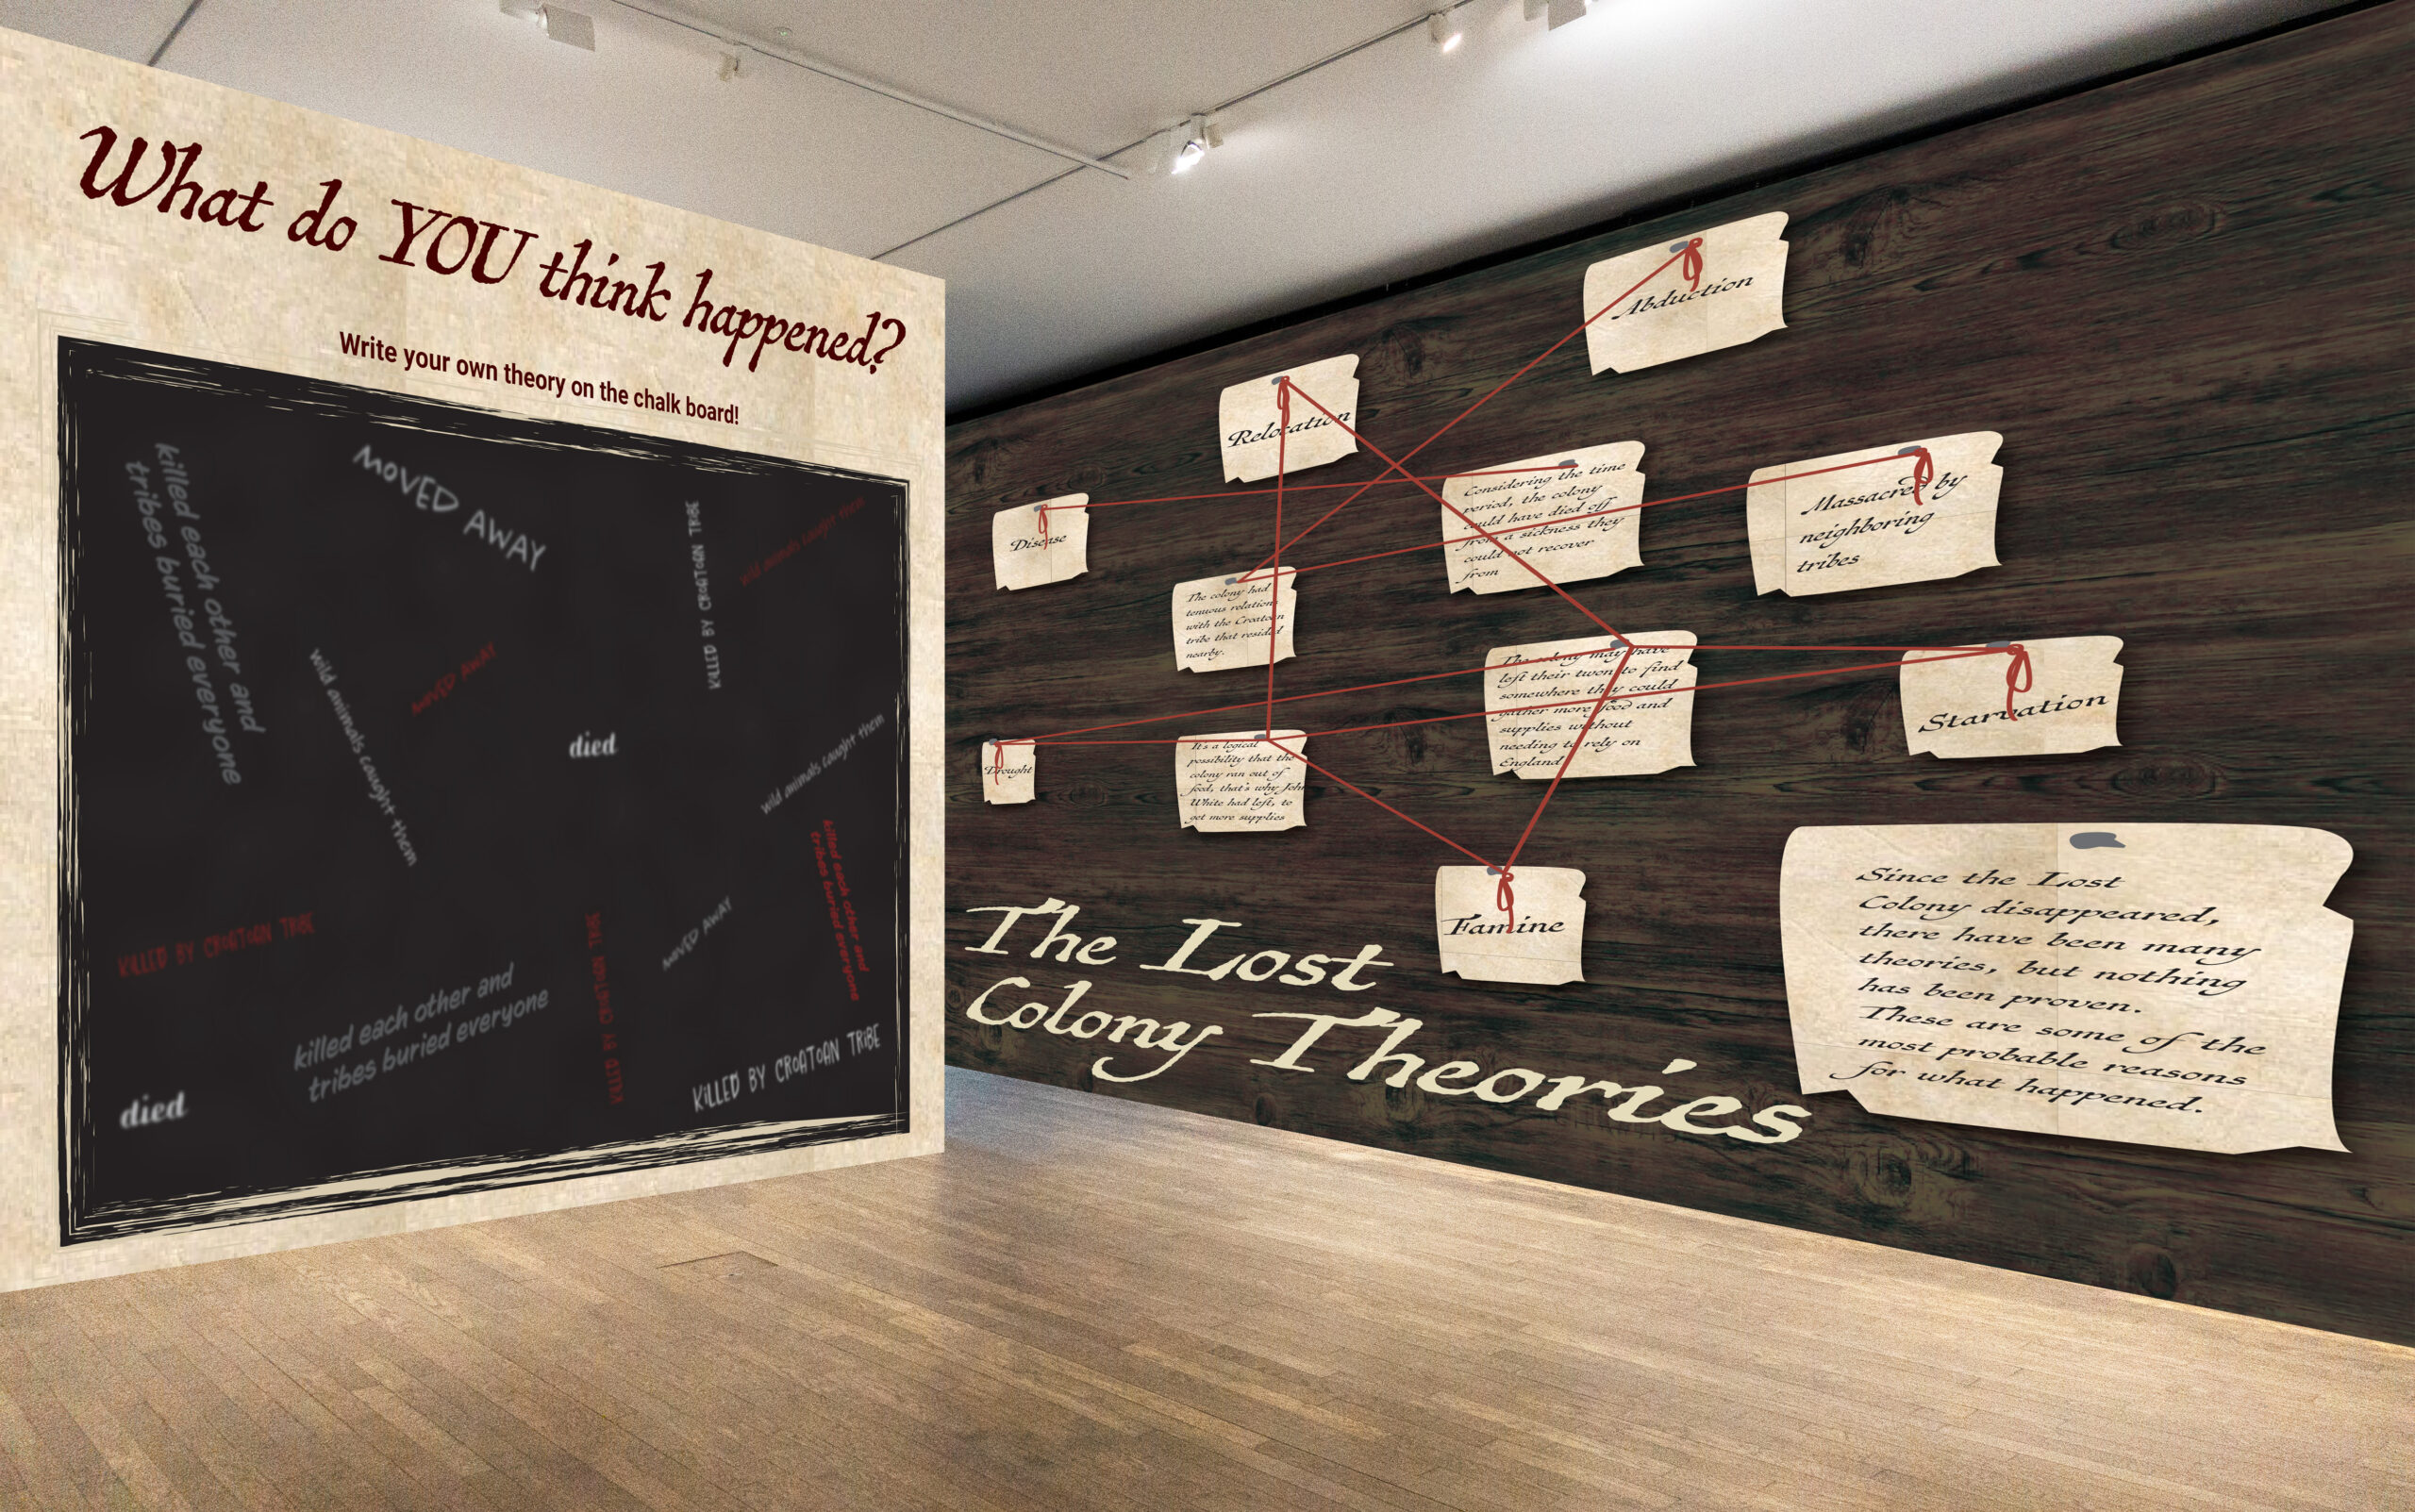 What do YOU think happened?
Write your own theory on the chalk board!
killed each other and
tribes buried everyone
MOVED AWAY
KILLED BY CROATOAN TRIBE
wild animals caught them
wild animals caught them
MOVED AWAY
died
wild animals caught them
killed each other and
tribes buried everyone
KILLED BY CROATOAN TRIBE
KILLED BY CROATOAN TRIBE
MOVED AWAY
killed each other and
tribes buried everyone
died
KILLED BY CROATOAN TRIBE
Abduction
Relocation
Disease
Considering the time
period, the colony
could have died off
from a sickness they
could not recover
from
Massacred by
neighboring
tribes
The colony had
tenuous relations
with the Croatoan
tribe that resided
nearby.
The colony may have
left their twon to find
somewhere they could
gather more food and
supplies without
needing to rely on
England
Starvation
Drought
It's a logical
possibility that the
colony ran out of
food, that's why John
White had left, to
get more supplies
Famine
The Lost
Colony Theories
Since the Lost
Colony disappeared,
there have been many
theories, but nothing
has been proven.
These are some of the
most probable reasons
for what happened.